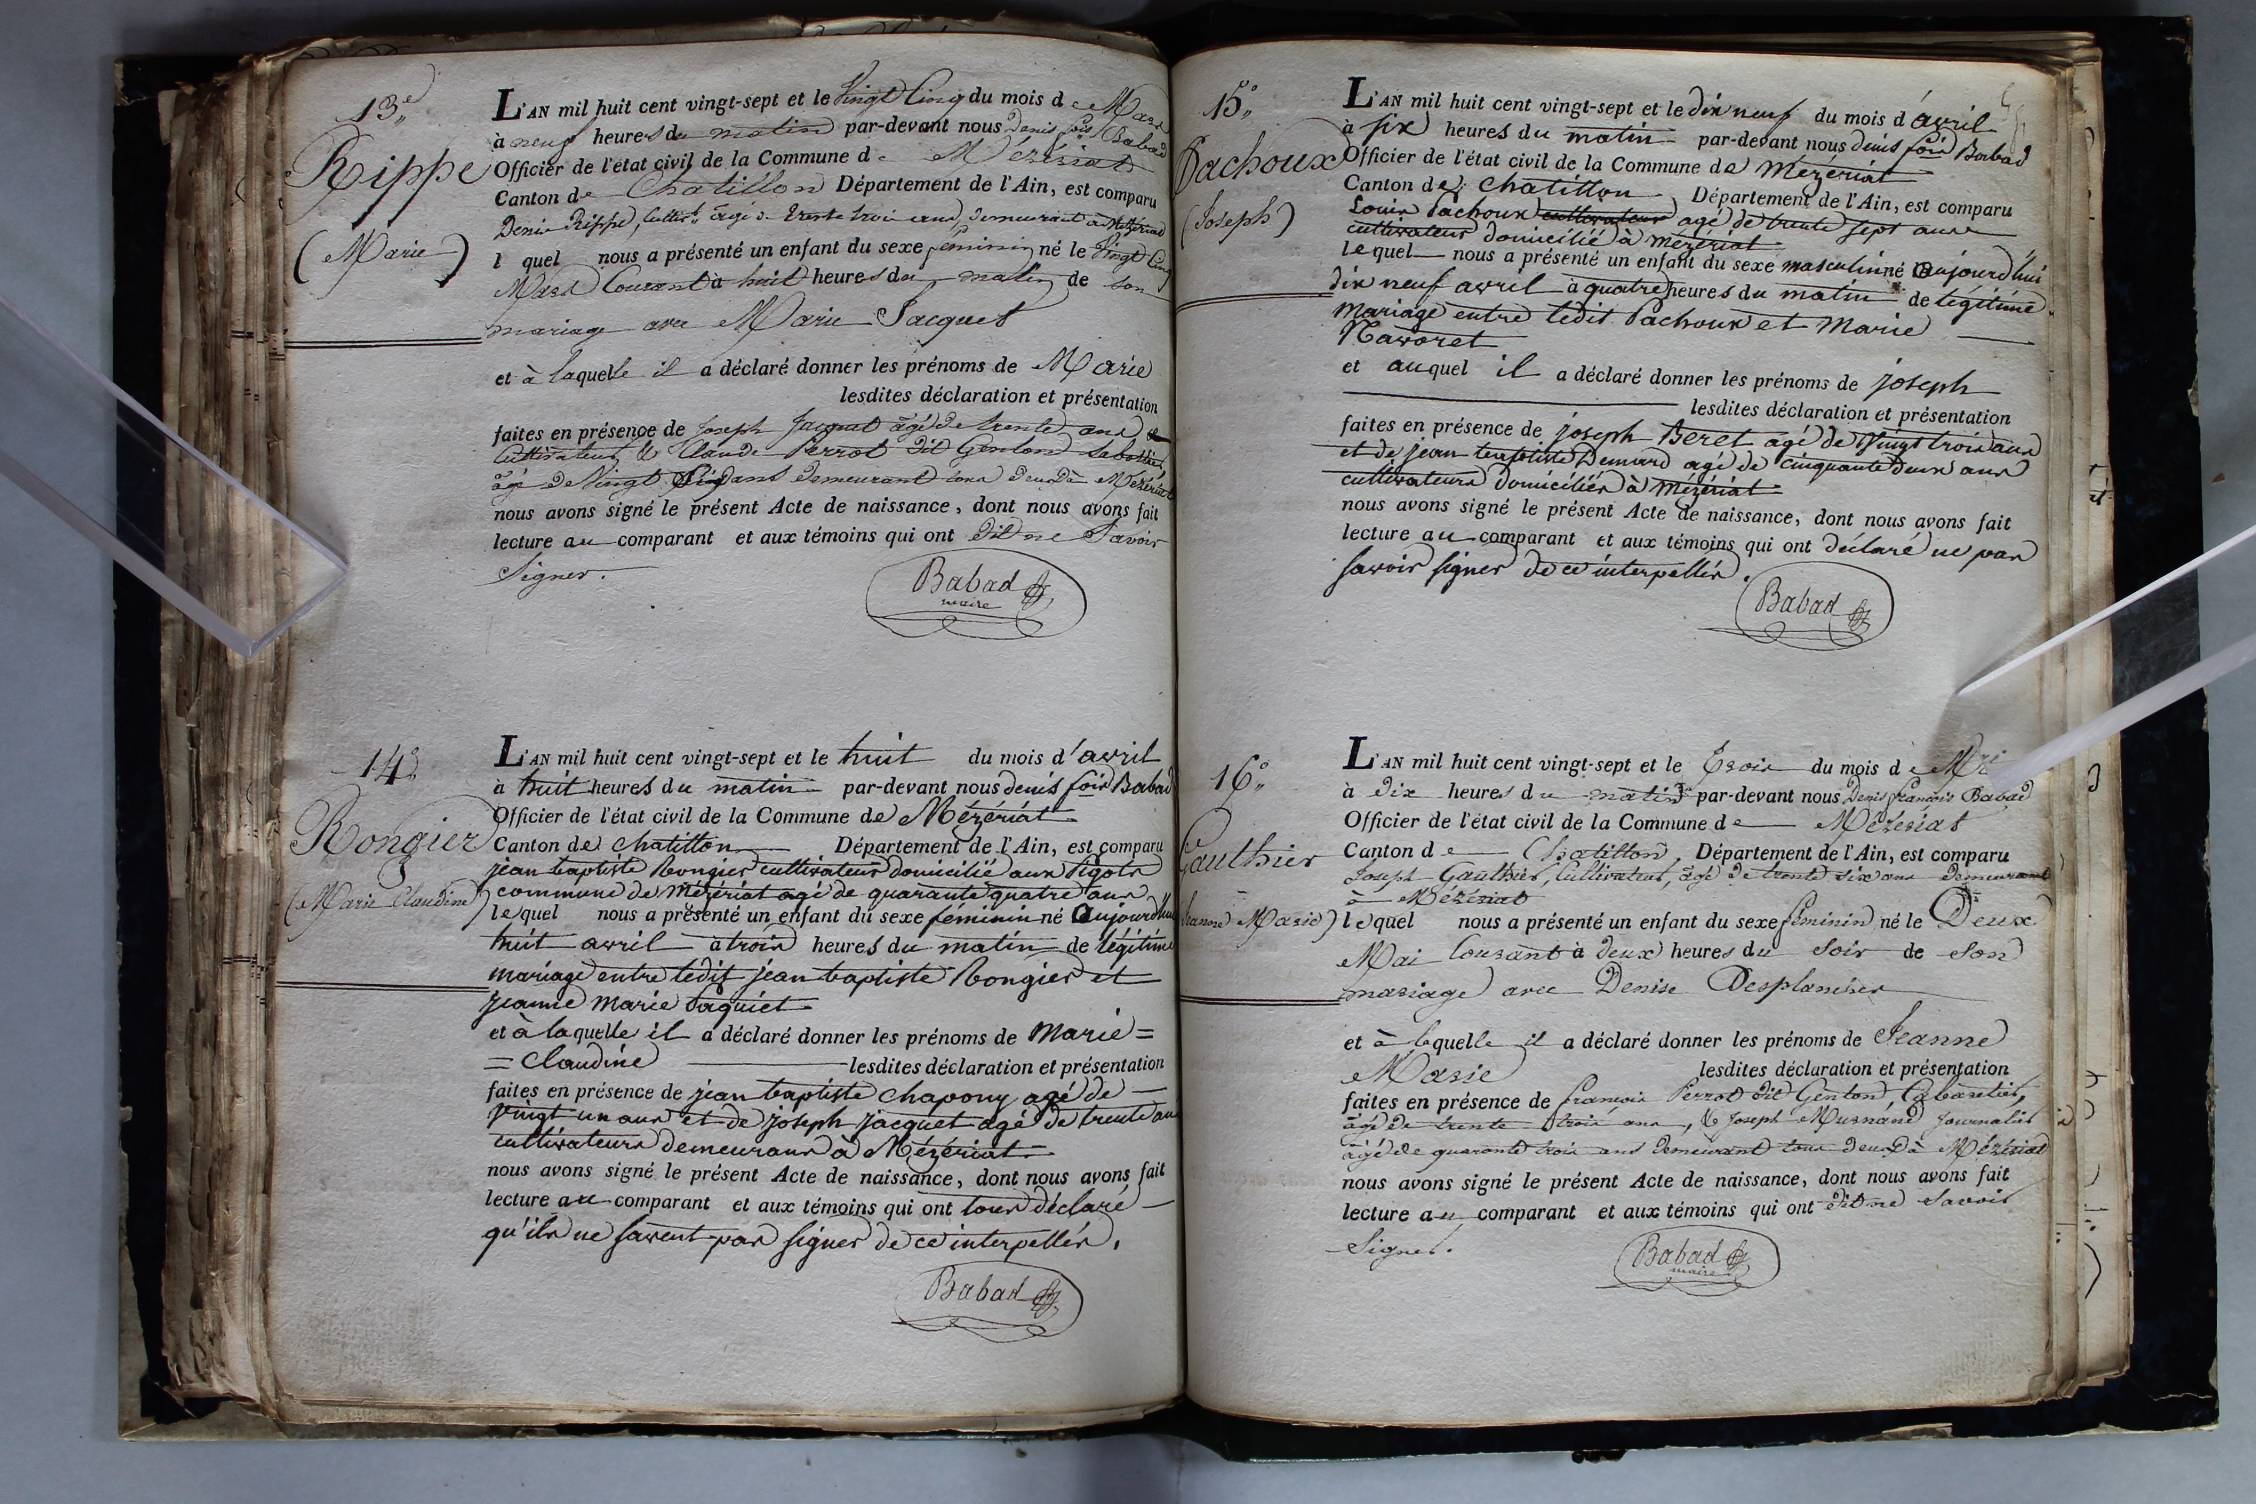 13e
Rippe
(Marie)
L'AN mil huit cent vingt-sept et le Vingt Cinq du mois de Mars
à neuf heures du matin par-devant nous Denis fois Babad
Officier de l'état civil de la Commune de Mézériat
Canton de Chatillon Département de l'Ain, est comparu
Denis Rippe, Cultivr âgé de trente trois ans, demeurant à Mézériat
l quel nous a présenté un enfant du sexe féminin né le Vingt Cinq
Mars Courant à huit heures du matin de son
mariage avec Marie Jacquet
et à laquelle il a déclaré donner les prénoms de Marie
lesdites déclaration et présentation
faites en présence de Joseph Jacquet âgé de trente ans
Cultivateur & Claude Perrot dit Genton Sabotier
âgé de Vingt Cinq ans demeurant tous deux à Mézériat
nous avons signé le présent Acte de naissance, dont nous avons fait
lecture au comparant et aux témoins qui ont dit ne Savoir
Signer.
Babad
maire
14e
Rongier
(Marie Claudine)
L'AN mil huit cent vingt-sept et le huit du mois d'avril
à huit heures du matin par-devant nous denis fois Babad
Officier de l'état civil de la Commune de Mézériat
Canton de chatillon Département de l'Ain, est comparu
jean baptiste Rongier cultivateur domicilié aux Pigots
commune de Mézériat agé de quarante quatre ans
lequel nous a présenté un enfant du sexe féminin né aujourd'hui
huit avril à trois heures du matin de légitime
mariage entre ledit jean baptiste Rongier et
jeanne marie Paquiet
et à laquelle il a déclaré donner les prénoms de Marie =
= Claudine lesdites déclaration et présentation
faites en présence de jean baptiste chapouy agé de
vingt un ans et de joseph jacquet agé de trente ans
cultivateurs demeurans à Mézériat
nous avons signé le présent Acte de naissance, dont nous avons fait
lecture au comparant et aux témoins qui ont tous déclaré
qu'ils ne savent pas signer de ce interpellés.
Babad
15°
Pachoux
(Joseph)
L'AN mil huit cent vingt-sept et le dix neuf du mois d'avril
à six heures du matin par-devant nous denis fois Babad
Officier de l'état civil de la Commune de Mézériat
Canton de chatillon Département de l'Ain, est comparu
Louis Pachoux cultivateur agé de trente sept ans
cultivateur domicilié à Mézériat
lequel nous a présenté un enfant du sexe masculin né aujourd'hui
dix neuf avril à quatre heures du matin de légitime
mariage entre ledit Pachoux et Marie
Navoret
et auquel il a déclaré donner les prénoms de joseph
lesdites déclaration et présentation
faites en présence de joseph Beret agé de vingt trois ans
et de jean baptiste Demard agé de cinquante deux ans
cultivateurs domiciliés à Mézériat
nous avons signé le présent Acte de naissance, dont nous avons fait
lecture au comparant et aux témoins qui ont déclaré ne pas
savoir signer de ce interpellés.
Babad
16°
Gauthier
Jeanne Marie)
L'AN mil huit cent vingt-sept et le Trois du mois de Mai
à dix heures du matin par-devant nous Denis françois Babad
Officier de l'état civil de la Commune de Mézériat
Canton de Chatillon Département de l'Ain, est comparu
Joseph Gauthier, Cultivateur, âgé de trente six ans demeurant
à Mézériat
lequel nous a présenté un enfant du sexe féminin né le Deux
Mai Courant à deux heures du Soir de son
mariage avec Denise Desplanches
et à laquelle il a déclaré donner les prénoms de Jeanne
Marie lesdites déclaration et présentation
faites en présence de françois Perrot dit Genton, Cabaretier,
âgé de trente trois ans, & Joseph Musnand Journalier
âgé de quarante trois ans demeurant tous deux à Mézériat
nous avons signé le présent Acte de naissance, dont nous avons fait
lecture au comparant et aux témoins qui ont dit ne Savoir
Signer.
Babad
maire